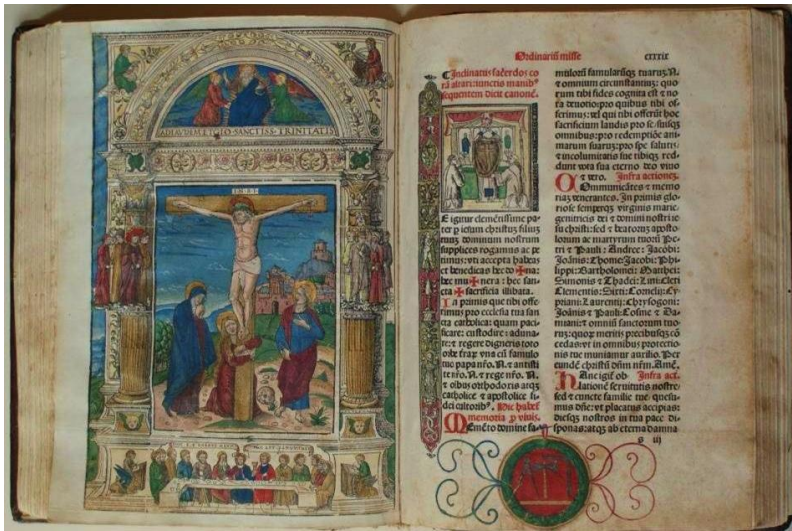 I N R I
Ordinariũ misse
cxxxix
Inclinatis sacerdos co
rã altari: iunctis manib⁹
sequentem dicit canonẽ.
E igitur clementissime pa-
ter p iesum christum filiũ
tuum dominum nostrum
supplices rogamus ac pe
timus: vti accepta habeas
et benedicas hec do ✠ na:
hec mu ✠ nera: hec san-
cta ✠ sacrificia illibata.
In primis que tibi offe-
rimus pro ecclesia tua san
cta catholica: quam paci-
ficare: custodire: aduna-
re: et regere digneris toto
orbe
papa nr̃o. N. et antisti
te nr̃o. N. et rege nr̃o. N.
et oibus orthodoxis atqz
catholice et apostolice fi-
dei cultorib⁹. Hic habet̃
memoria p viuis.
Memẽto domine fa-
muloruũ famularũqz tuarũ: N.
et omnium circunstantium: quo
rum tibi fides cognita est et no
ta deuotio: pro quibus tibi of-
ferimus: vel qui tibi offerũt hoc
sacrificium laudis pro se: suisqz
omnibus: pro redemptiõe ani-
marum suarum: pro spe salutis
et incolumitatis sue: tibiqz red-
dunt vota sua eterno deo viuo
et vero. Infra actionem.
Communicãtes et memo-
riam venerantes. In primis glo-
riose semperqz virginis marie
genitricis dei et domini nostri ie
su christi: sed et beatorum aposto-
lorum ac martyrum tuorũ Pe-
tri et Pauli: Andree: Jacobi:
Joãnis: Thome: Jacobi: Phi-
lippi: Bartholomei: Matthei:
Simonis et Thadei: Lini: Cleti
Clementis: Sixti: Cornelij: Cy-
priani: Laurentij: Chrysogoni:
Joãnis et Pauli: Cosme et Da-
miani: et omniũ sanctorum tuo-
rum: quoz meritis precibusqz cõ
cedas: vt in omnibus protectio-
nis tue muniamur auxilio. Per
eundẽ christũ dñm nr̃m. Amẽ.
Hanc igit̃ ob- Infra act.
lationẽ seruitutis nostre:
sed et cuncte familie tue: quesu-
mus dñe: vt placatus accipias:
diesqz nostros in tua pace di-
sponas: atqz ab eterna damna